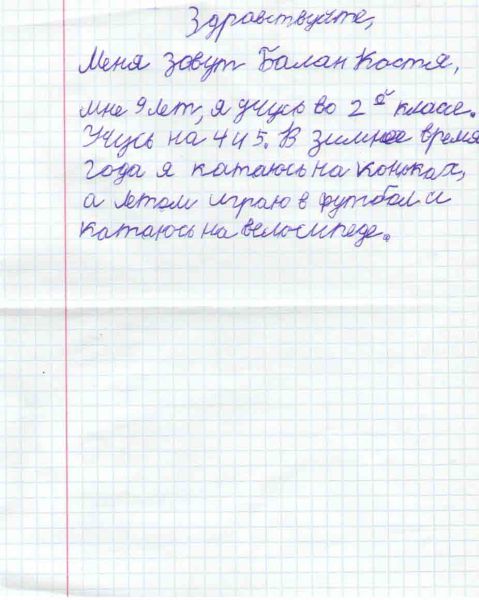 Здравствуйте,
Меня зовут Балан Костя,
мне 9 лет, я учусь во 2 ой класе.
Учусь на 4 и 5. В зимнее время
года я катаюсь на коньках,
а летом играю в футбол и
катаюсь на велосипеде.